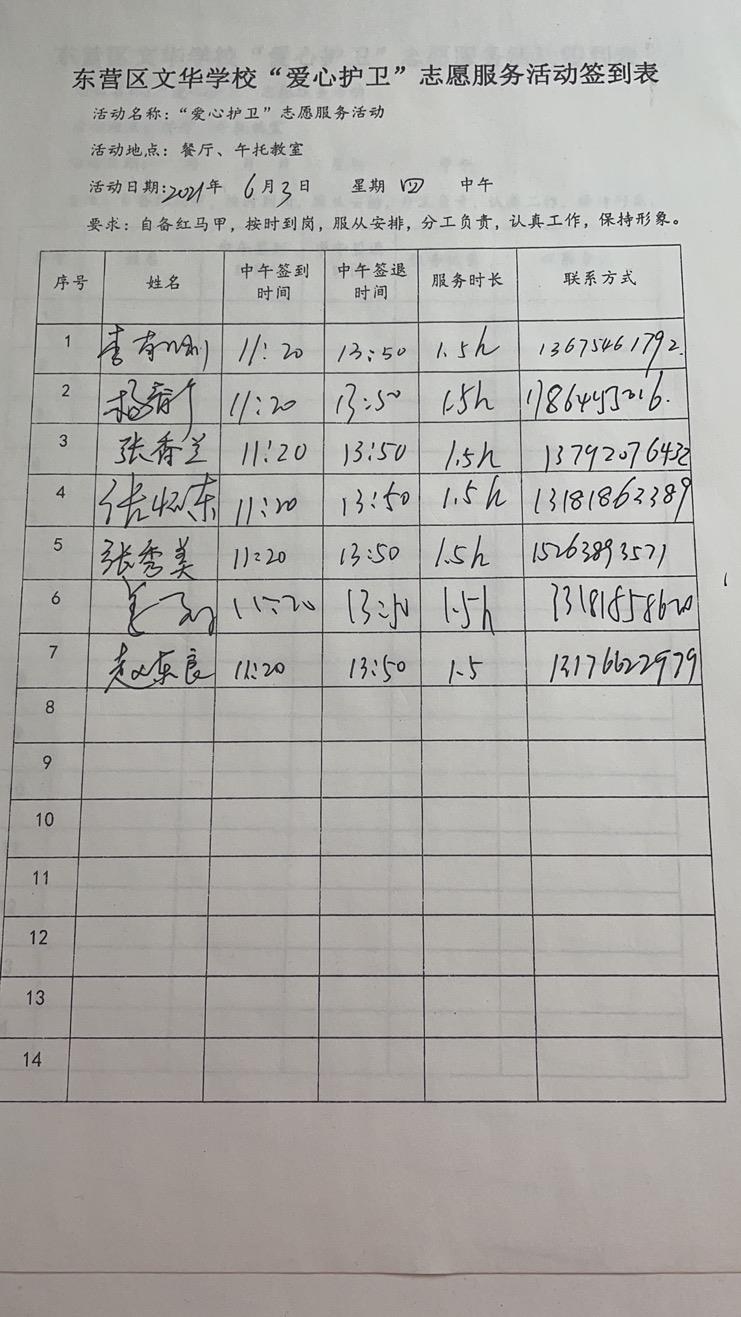 东营区文华学校“爱心护卫”志愿服务活动签到表
活动名称：“爱心护卫”志愿服务活动
活动地点：餐厅、午托教室
活动日期：2021年 6月3日 星期 四 中午
要求：自备红马甲，按时到岗，服从安排，分工负责，认真工作，保持形象。
序号 姓名 中午签到时间 中午签退时间 服务时长 联系方式
1 11:20 13:50 1.5h 13675461792.
2 11:20 13:50 1.5h
3 张香兰 11:20 13:50 1.5h 13792076432
4 11:20 13:50 1.5h 13181862389
5 张秀美 11:20 13:50 1.5h 15263893571
6 11:20 13:50 1.5h
7 赵东良 11:20 13:50 1.5 13176622979
8
9
10
11
12
13
14